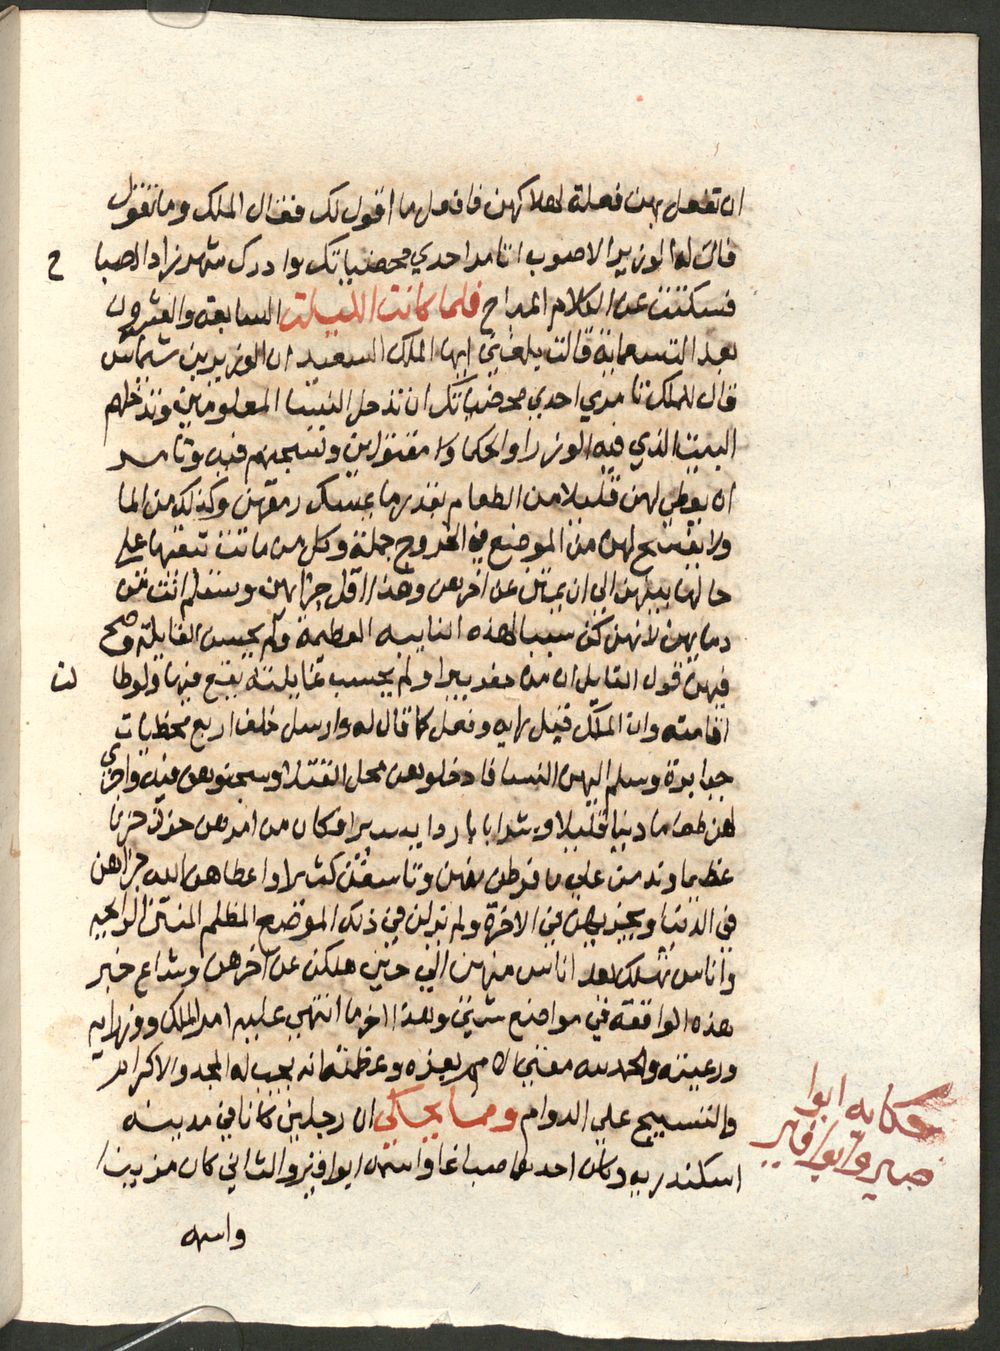 ان تفعل بهن فعلة لهلاكهن فافعل ما اقول لك فقال الملك وما تقول
قالت له الوزير الاصوب انك تامر احدي محضياتك وادرك شهرزاد الصبا
ح
فسكتت عن الكلام المباح فلما كانت الليلت السابعه والعشرون
بعد التسعماية قالت بلغني ايها الملك السعيد ان الوزير بن شماس
قال للملك تامري احدي محضياتك ان تدخل النسا المعلومين وتدخلهم
البيت الذي فيه الوزرا والحكما مقتولين وتسجنهم فيه وتامر
ان يعطي لهن قليلا من الطعام بقدر ما يمسك رمقهن وكذلك من الما
ولا يفسح لهن من الموضع في الخروج جملة وكل من ماتت تبقيها علي
حالها بينهن الي ان يمتن عن اخرهن وهذا اقل جزاهن
دمايهن لانهن كن سببا لهذه النايبه العظيمة
فيهن قول القايل ان من حفر بيرا
لت
اقامته وان الملك قبل رايه وفعل كما قال له وارسل خلف اربع محظيات
جبابرة وسلم اليهن النسا فادخلوهن محل القتلا وسجنوهن فيه واجري
لهن طعاما دنيا قليلا وشرابا باردا يسيرا فكان من امرهن حزن حزنا
عظيما وندمن علي ما فرطن منهن وتاسفن كثيرا واعطاهن الله جزاهن
في الدنيا ويجزيهن في الاخرة ولم يزلن في ذلك الموضع المظلم المنتن الرايحه
واناس تهلك بعد اناس منهن الي حين هلكن عن اخرهن وشاع خبر
هذه الواقعة في مواضع شتي وهذا اخر ما انتهي عليه امر الملك ووزرايه
ورعيته والحمد لله مفني الامم بعزه وعظمته انه يجب له المجد والاكرام
والتسبيح علي الدوام ومما يحاكي ان رجلين كانا في مدينه
اسكندريه وكان احدهما صباغا واسمه ابوا قير والثاني كان مزينا
حكايه ابوا
صير وابوا قير
واسمه